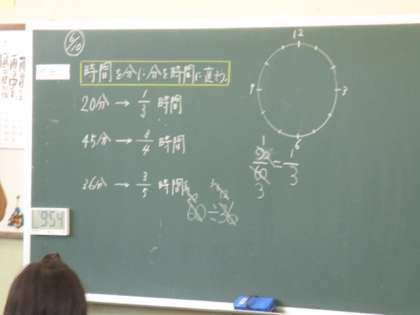 6/10
時間を分に分を時間に直そう
20分→1/3時間
45分→3/4時間
36分→3/5時間
12
3
6
9
20/60=1/3
1
3
60÷36
9:54